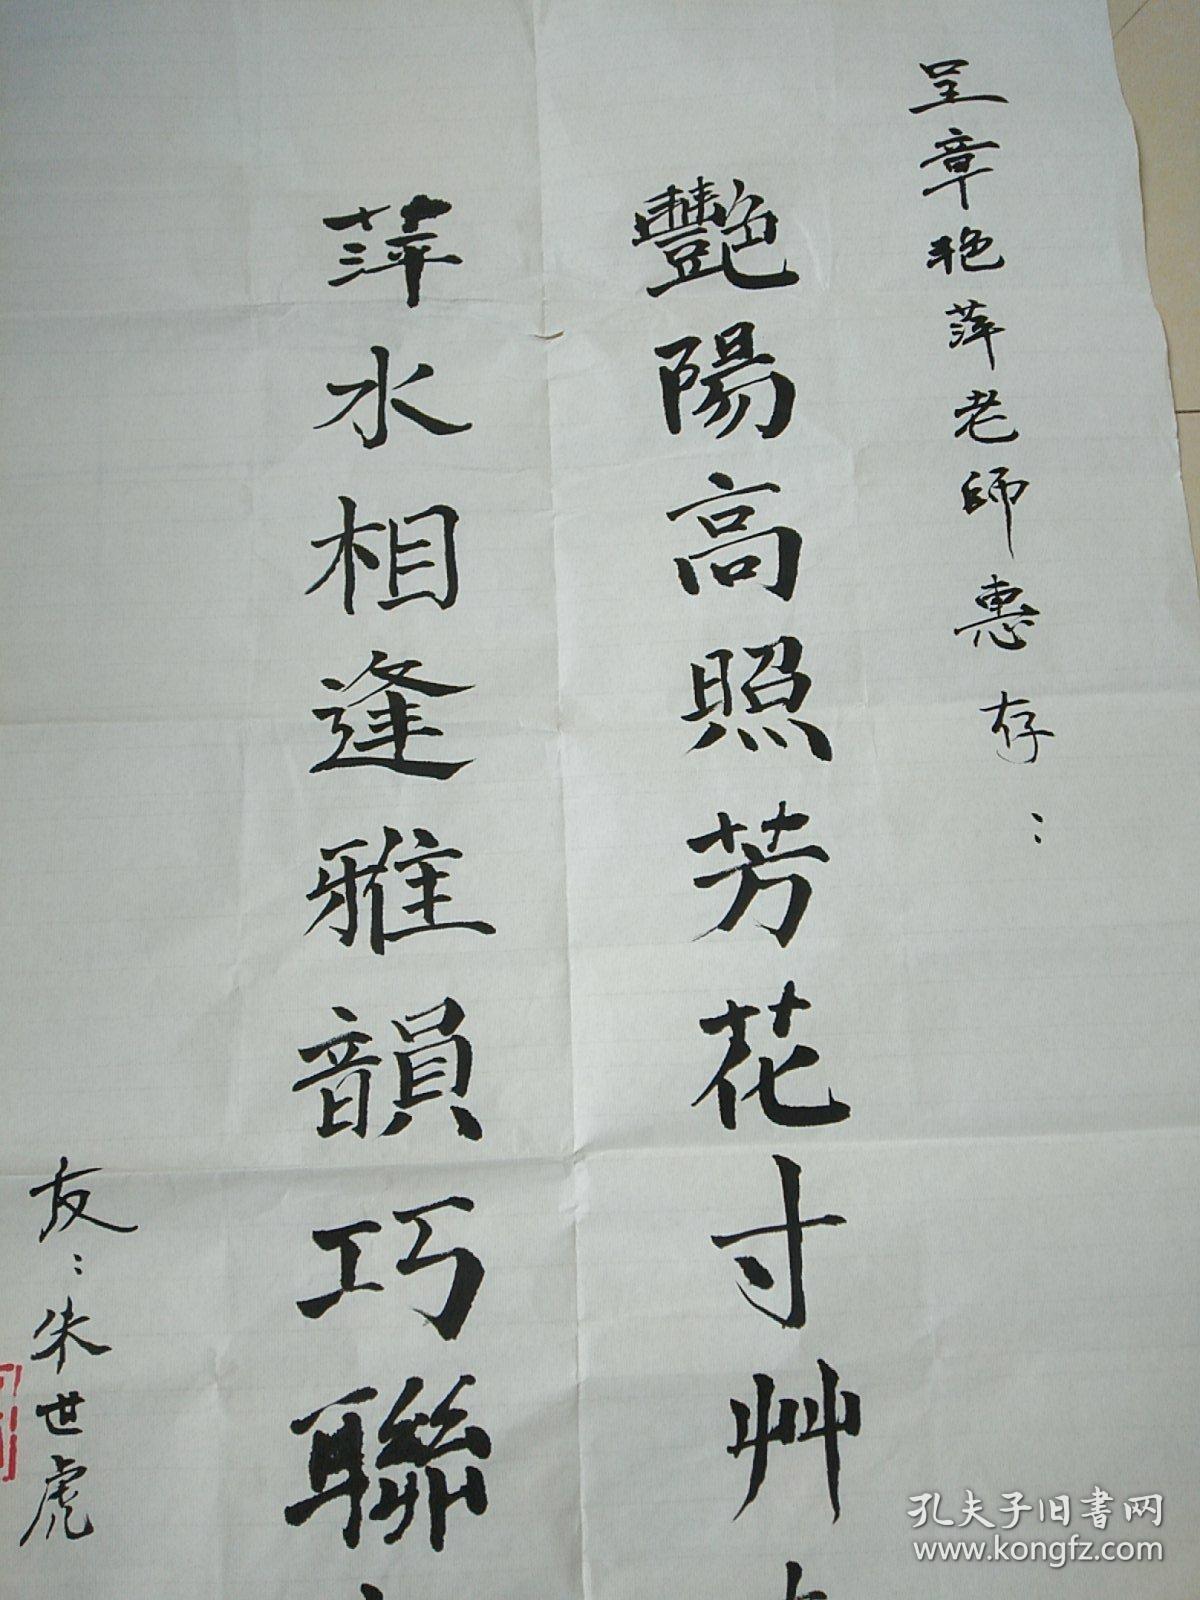 呈章艳萍老師惠存：
艷陽高照芳花寸艸
萍水相逢雅韻巧聯
友：朱世虎
孔夫子旧書网
www.kongfz.com